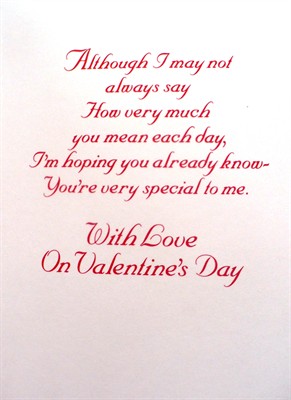 Although I may not
always say
How very much
you mean each day,
I'm hoping you already know-
You're very special to me.
With Love
On Valentine's Day